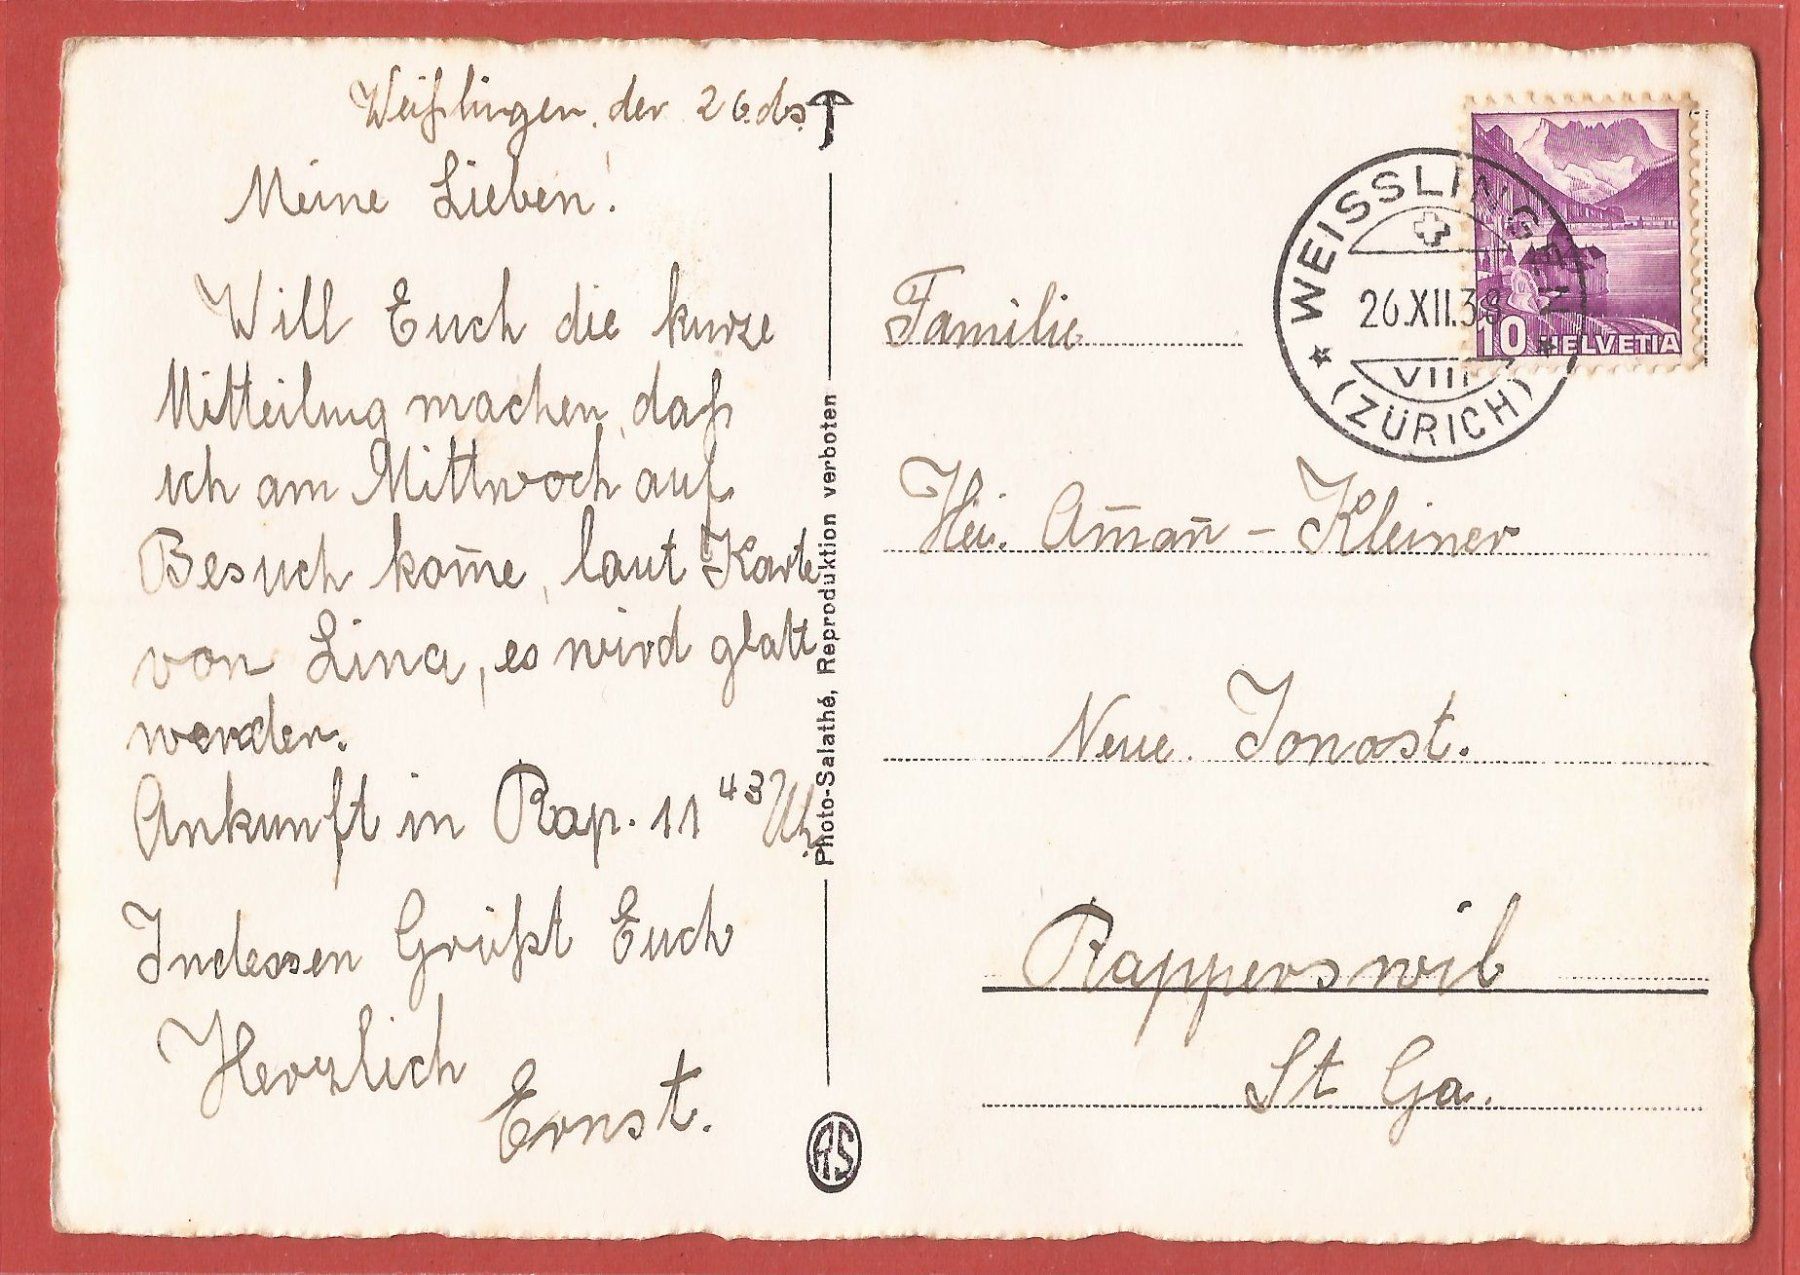 Weißlingen, der 26. ds.
Meine Lieben!
Will Euch die kurze
Mitteilung machen, daß
ich am Mittwoch auf
Besuch kom̄e, laut Karte
von Lina, es wird glatt
werden.
Ankunft in Rap. 11 43 Uhr
Indessen Grüßt Euch
Herzlich
Ernst.
Photo-Salathé, Reproduktion verboten
AS
WEISSLINGEN
26.XII.38
VIII
(ZÜRICH)
10 HELVETIA
Familie
Hei. Am̄an̄ - Kleiner
Neue. Jonast.
Rapperswil
St Ga.